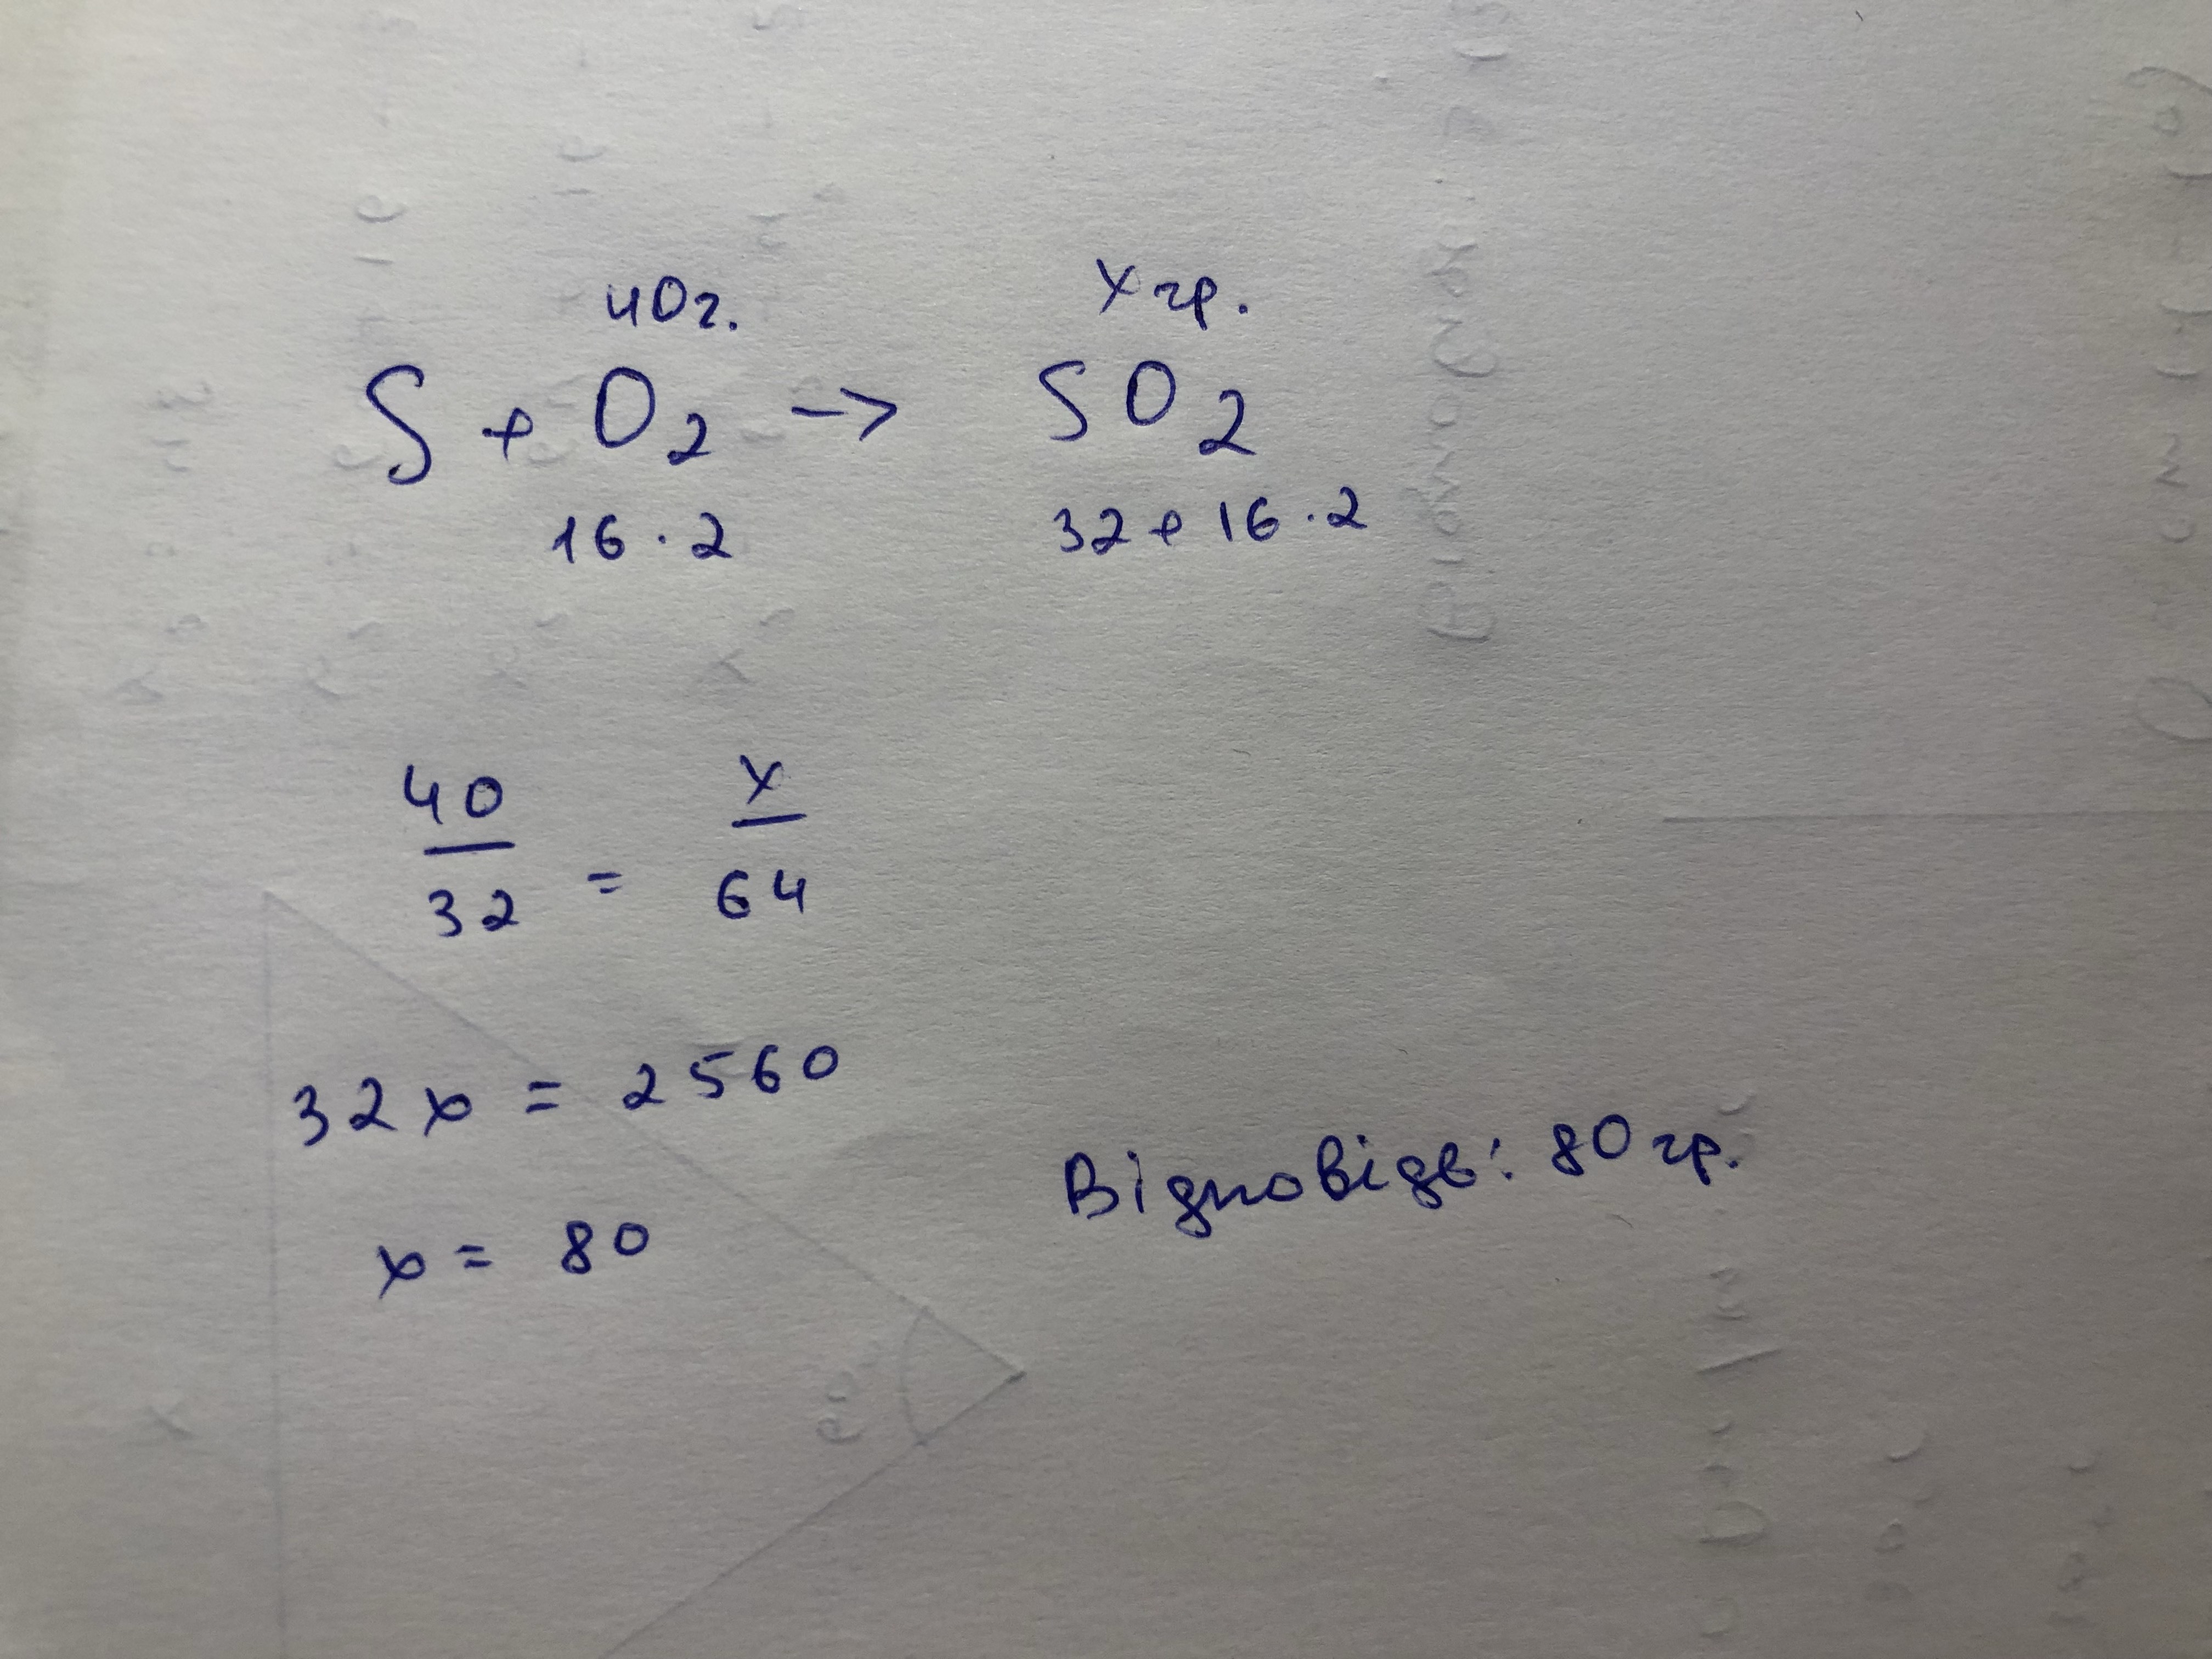 40г. х гр.
S + O₂ → SO₂
16 · 2 32 + 16 · 2
40/32 = x/64
32x = 2560
x = 80
Відповідь: 80 гр.